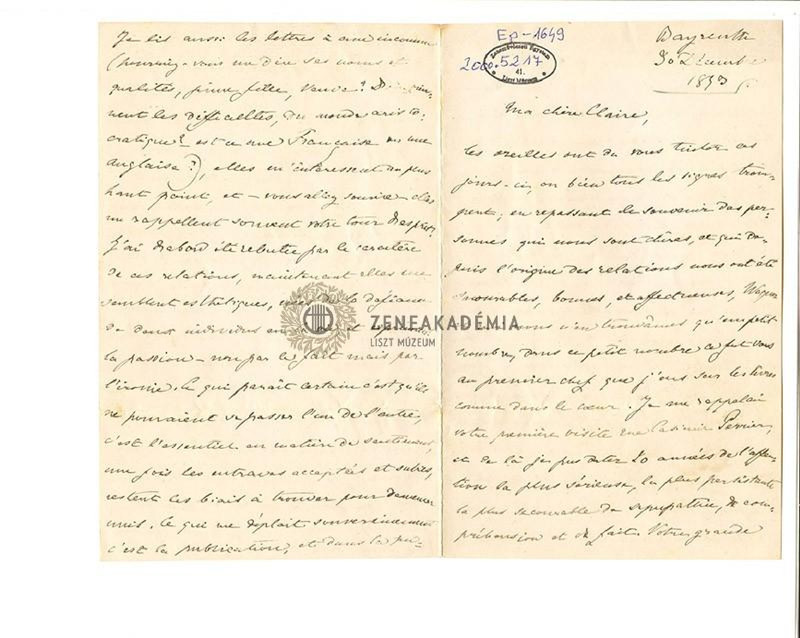 Ep-1649
2000.5217
41.
Bayreuth
30 Décembre
1873
Ma chère Claire,
Les oreilles ont dû vous tinter ces
jours-ci, ou bien tous les signes trom-
pent; en repassant le souvenir des per-
sonnes qui nous sont chères, et qui de-
puis l'origine des relations nous ont été
secourables, bonnes, et affectueuses, Wagner
n'en trouvâmes qu'un petit
nombre, dans ce petit nombre ce fut vous
au premier chef que j'eus sur les lèvres
comme dans le cœur. Je me rappelais
votre première visite rue Casimir Perrier,
et de là je pus dater 20 années de l'affec-
tion la plus sérieuse, la plus persistante
la plus secourable de sympathie, de com-
préhension et de fait. Votre grande
Je lis aussi les lettres à une inconnue
(pourriez-vous me dire ses noms et
qualités, jeune fille, veuve?
nent les difficultés, du monde aristo-
cratique? est ce une Française ou une
Anglaise?), elles m'intéressent au plus
haut point, et - vous allez sourire - elles
me rappellent souvent votre tour d'esprit.
J'ai d'abord été rebutée par le caractère
de ces relations, maintenant elles me
semblent esthétiques, la défiance
de deux individus
la passion - non par le fait mais par
l'ironie. Ce qui paraît certain c'est qu'ils
ne pouvaient se passer l'un de l'autre,
c'est l'essentiel en matière de sentiment,
une fois les entraves acceptées et subies,
restent les biais à trouver pour demeurer
unis. Ce qui me déplaît souverainement
c'est la publication, et dans la pu-
ZENEAKADÉMIA
LISZT MÚZEUM